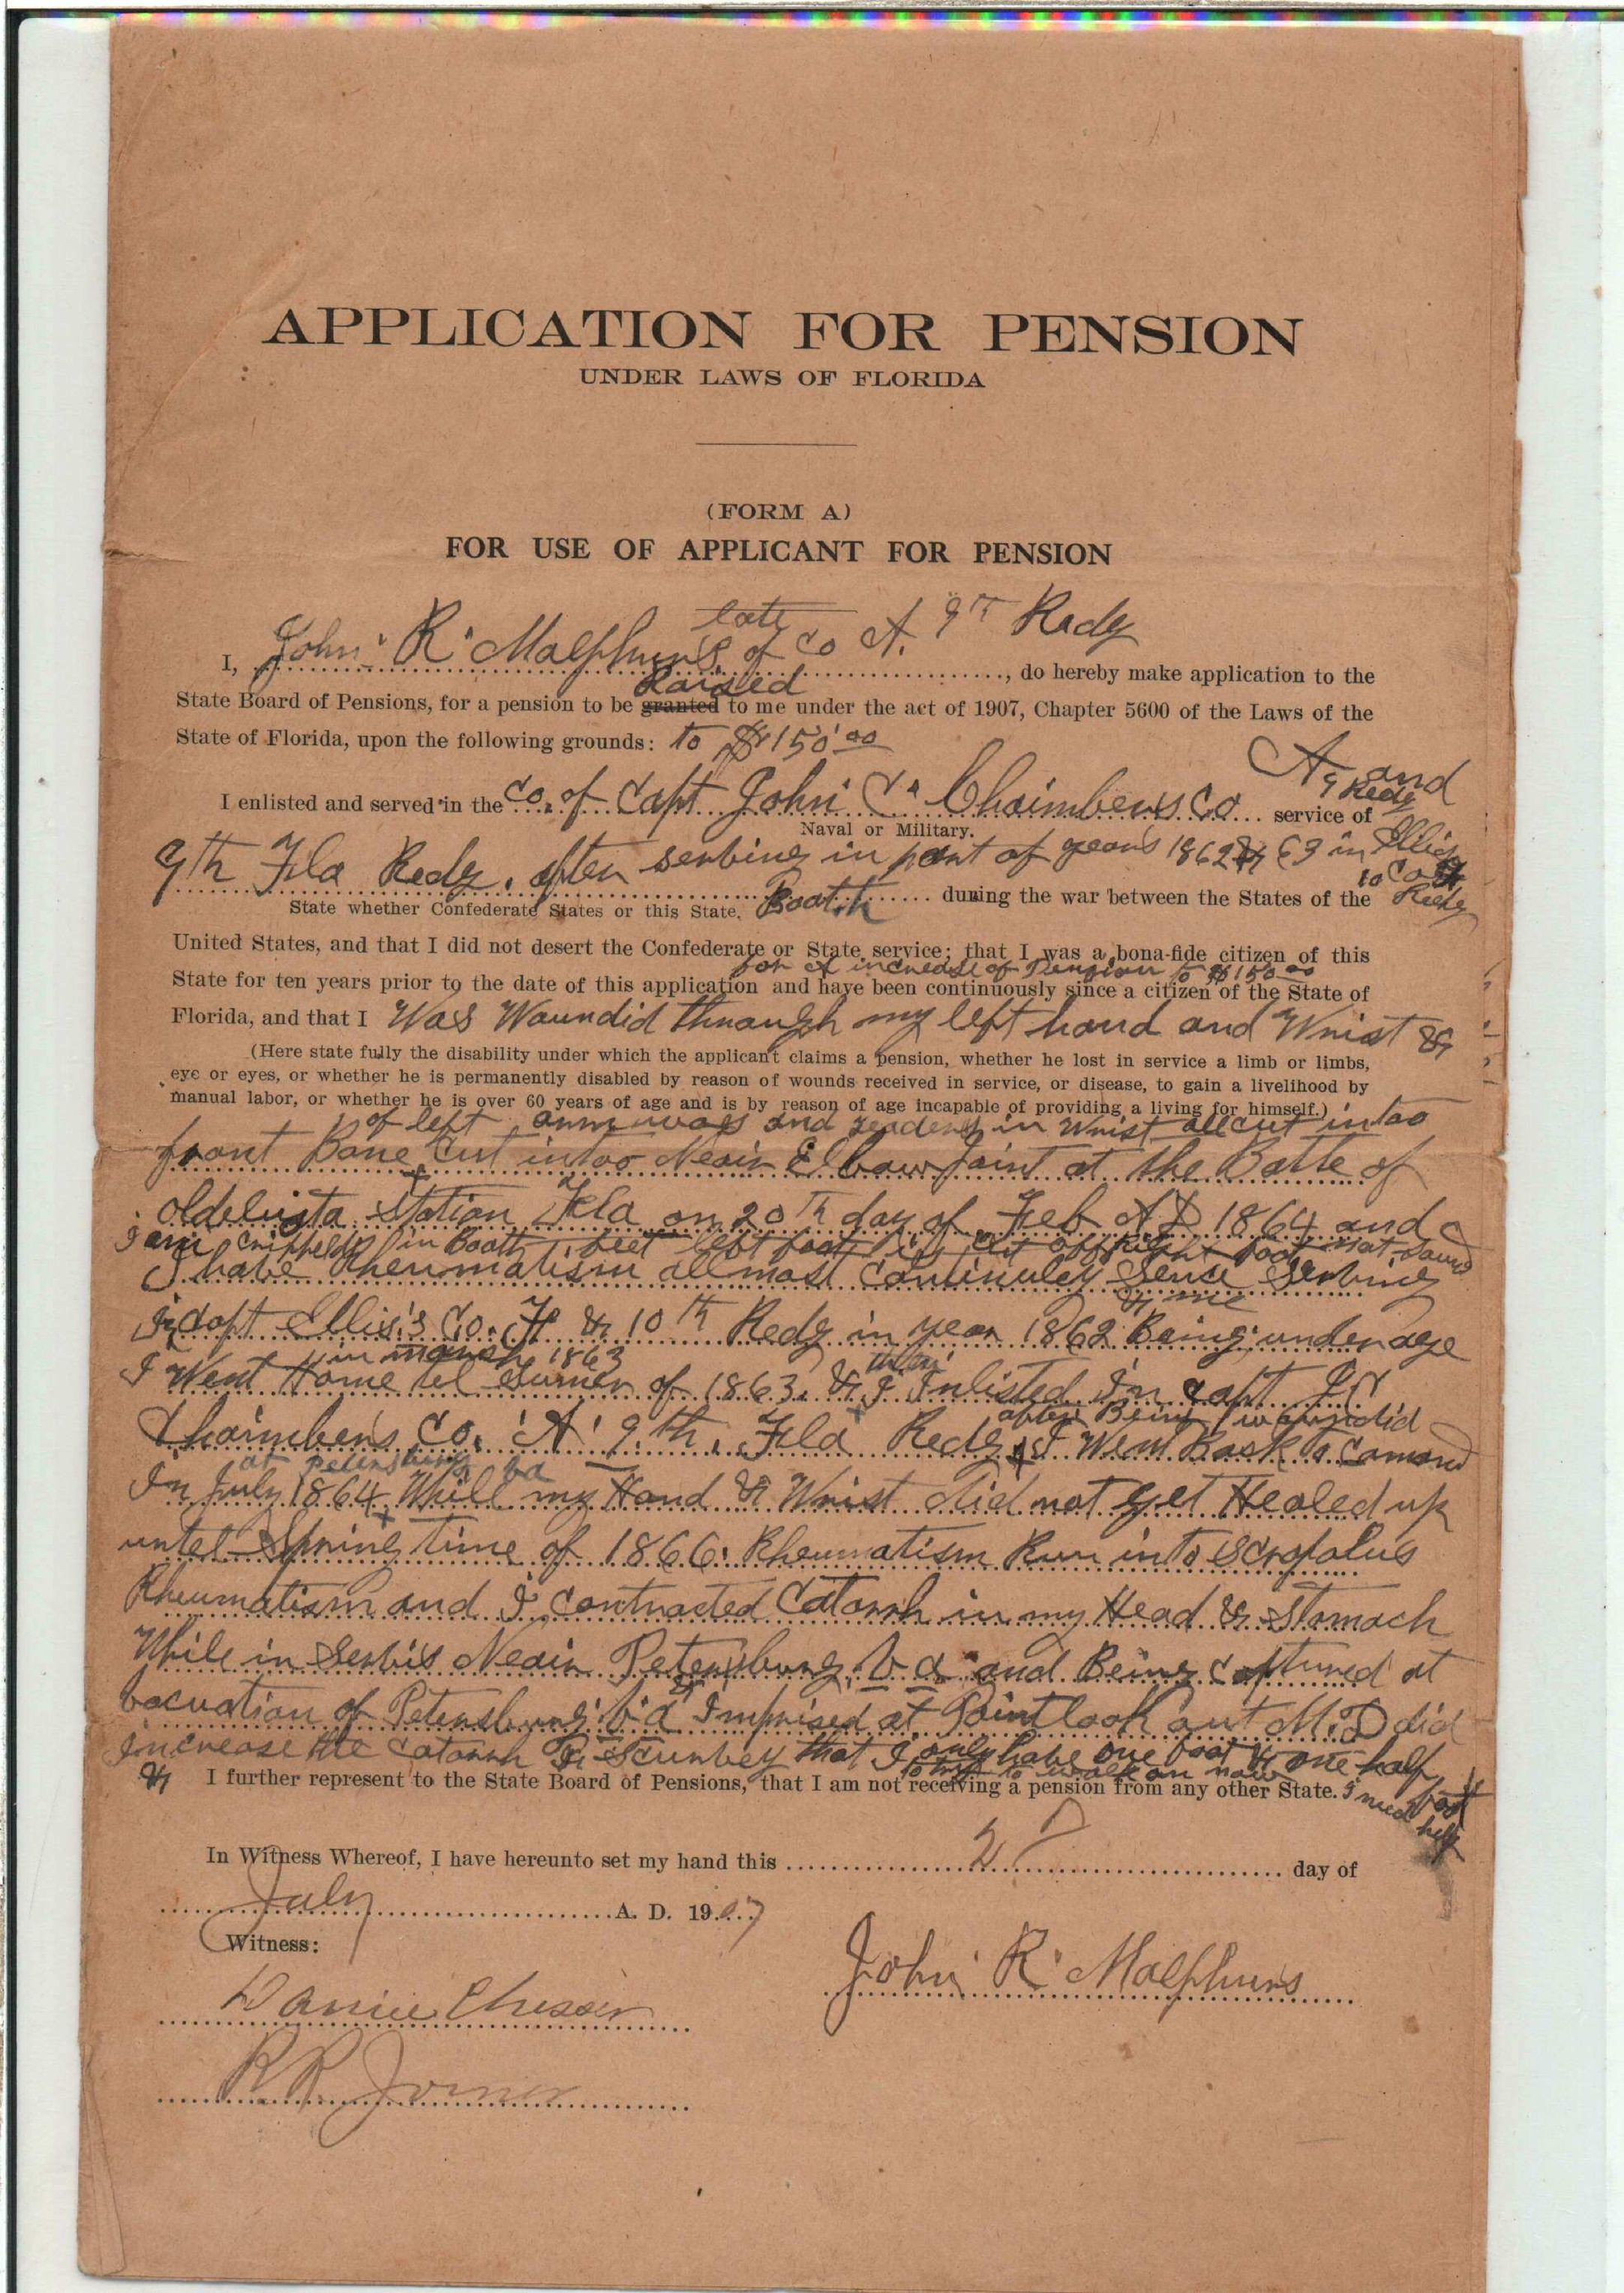 APPLICATION FOR PENSION
UNDER LAWS OF FLORIDA
(FORM A)
FOR USE OF APPLICANT FOR PENSION
late
I, John R Malphurs of Co A. 9th Redg, do hereby make application to the
Raised
State Board of Pensions, for a pension to be granted to me under the act of 1907, Chapter 5600 of the Laws of the
State of Florida, upon the following grounds: to $150.00
A, and
9 Redg
I enlisted and served in the Co. of Capt John C. Chaimbers Co service of
Naval or Military.
9th Fla Redg. after serbing in part of years 1862 & 63 in Ellis
to Co
State whether Confederate States or this State. Booth during the war between the States of the Redg
United States, and that I did not desert the Confederate or State service; that I was a bona-fide citizen of this
for A increase of Pension to $150.00
State for ten years prior to the date of this application and have been continuously since a citizen of the State of
Florida, and that I Was Waundid through my left hand and Wrist &
(Here state fully the disability under which the applicant claims a pension, whether he lost in service a limb or limbs,
eye or eyes, or whether he is permanently disabled by reason of wounds received in service, or disease, to gain a livelihood by
manual labor, or whether he is over 60 years of age and is by reason of age incapable of providing a living for himself.)
of left arm and in Wrist all cut intoo
front Bone Cut intoo Neair Elbow Joint at the Batle of
oldelusta Station Fla on 20th day of Feb AD 1864 and
I am crippeld in Booth feet left foot cut off right foot not sound
I have Rheumatism allmost continuley Sence Serbing
in Capt Ellis's Co. F & 10th Redg in year 1862 Being under age
in march 1863
I Went Home tel Sumer of 1863. & I then Inlisted In Capt J C
after Being waundid
Chaimbers Co. A 9th. Fla Redg & I Went Back to Comand
at Petersburg Va
In July 1864 Whill my Hand & Wrist did not get Healed up
untel Spring time of 1866. Rheumatism Run into Scrofolus
Rheumatism and I contracted Catarrh in my Head & Stomach
While in Serbis Neair Petersburg, Va and Being captured at
vacuation of Petersburg Va & Imprised at Point look out M.D did
increase the Catarrh & Scurvey that I only have one foot & one half
foot
to walk on now
& I further represent to the State Board of Pensions, that I am not receiving a pension from any other State. I need help
In Witness Whereof, I have hereunto set my hand this 2 D day of
July A. D. 1907
Witness:
John R Malphurs
Chesser
R R Joiner